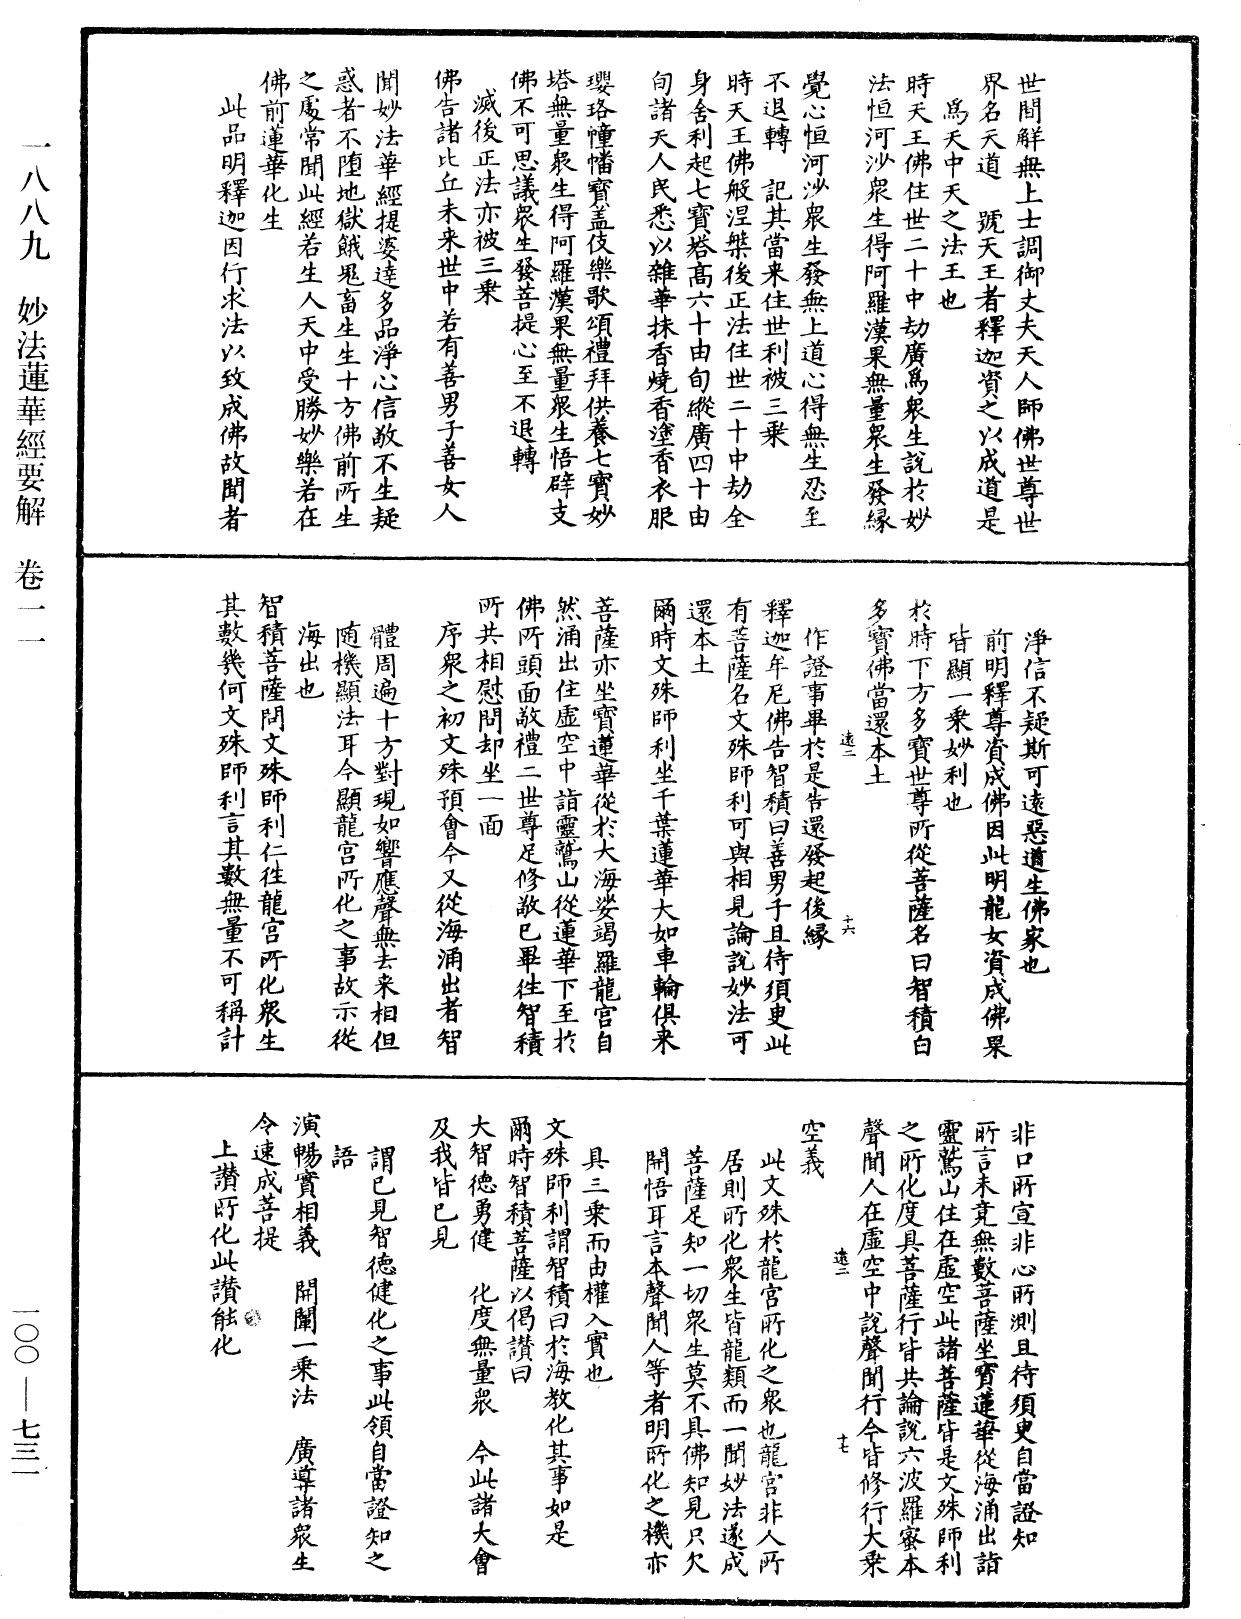 一八八九　妙法蓮華經要解　卷一一
世間解無上士調御丈夫天人師佛世尊世
界名天道　號天王者釋迦資之以成道是
爲天中天之法王也
時天王佛住世二十中劫廣爲衆生說於妙
法恒河沙衆生得阿羅漢果無量衆生發緣
覺心恒河沙衆生發無上道心得無生忍至
不退轉　記其當来住世利被三乗
時天王佛般涅槃後正法住世二十中劫全
身舍利起七寶塔髙六十由旬縱廣四十由
旬諸天人民悉以雜華抹香燒香塗香衣服
瓔珞幢幡寶盖伎樂歌頌禮拜供養七寶妙
塔無量衆生得阿羅漢果無量衆生悟辟支
佛不可思議衆生發菩提心至不退轉
滅後正法亦被三乗
佛告諸比丘未来世中若有善男子善女人
聞妙法華經提婆達多品淨心信敬不生疑
惑者不堕地獄餓鬼畜生生十方佛前所生
之處常聞此經若生人天中受勝妙樂若在
佛前蓮華化生
此品明釋迦因行求法以致成佛故聞者
淨信不疑斯可逺惡道生佛家也
前明釋尊資成佛因此明龍女資成佛果
皆顯一乗妙利也
於時下方多寶世尊所從菩薩名曰智積白
多寶佛當還本土
逺二　十六
作證事畢於是告還發起後縁
釋迦牟尼佛告智積曰善男子且待須臾此
有菩薩名文殊師利可與相見論說妙法可
還本土
爾時文殊師利坐千葉蓮華大如車輪俱来
菩薩亦坐寶蓮華從於大海娑竭羅龍宫自
然涌出住虛空中詣靈鷲山從蓮華下至於
佛所頭面敬禮二世尊足修敬已畢往智積
所共相慰問却坐一面
序衆之初文殊預會今又從海涌出者智
體周遍十方對現如響應聲無去来相但
随機顯法耳今顯龍宫所化之事故示從
海出也
智積菩薩問文殊師利仁往龍宫所化衆生
其數幾何文殊師利言其數無量不可稱計
非口所宣非心所測且待須臾自當證知
所言未竟無數菩薩坐寶蓮華從海涌出詣
靈鷲山住在虛空此諸菩薩皆是文殊師利
之所化度具菩薩行皆共論說六波羅蜜本
聲聞人在虛空中說聲聞行今皆修行大乗
逺二　十七
空義
此文殊於龍宫所化之衆也龍宫非人所
居則所化衆生皆龍類而一聞妙法遂成
菩薩足知一切衆生莫不具佛知見只欠
開悟耳言本聲聞人等者明所化之機亦
具三乗而由權入實也
文殊師利謂智積曰於海教化其事如是
爾時智積菩薩以偈讃曰
大智德勇健　化度無量衆　今此諸大會
及我皆已見
謂已見智徳健化之事此領自當證知之
語
演暢實相義　開闡一乗法　廣導諸衆生
令速成菩提
上讃所化此讃能化
一〇〇—七三一